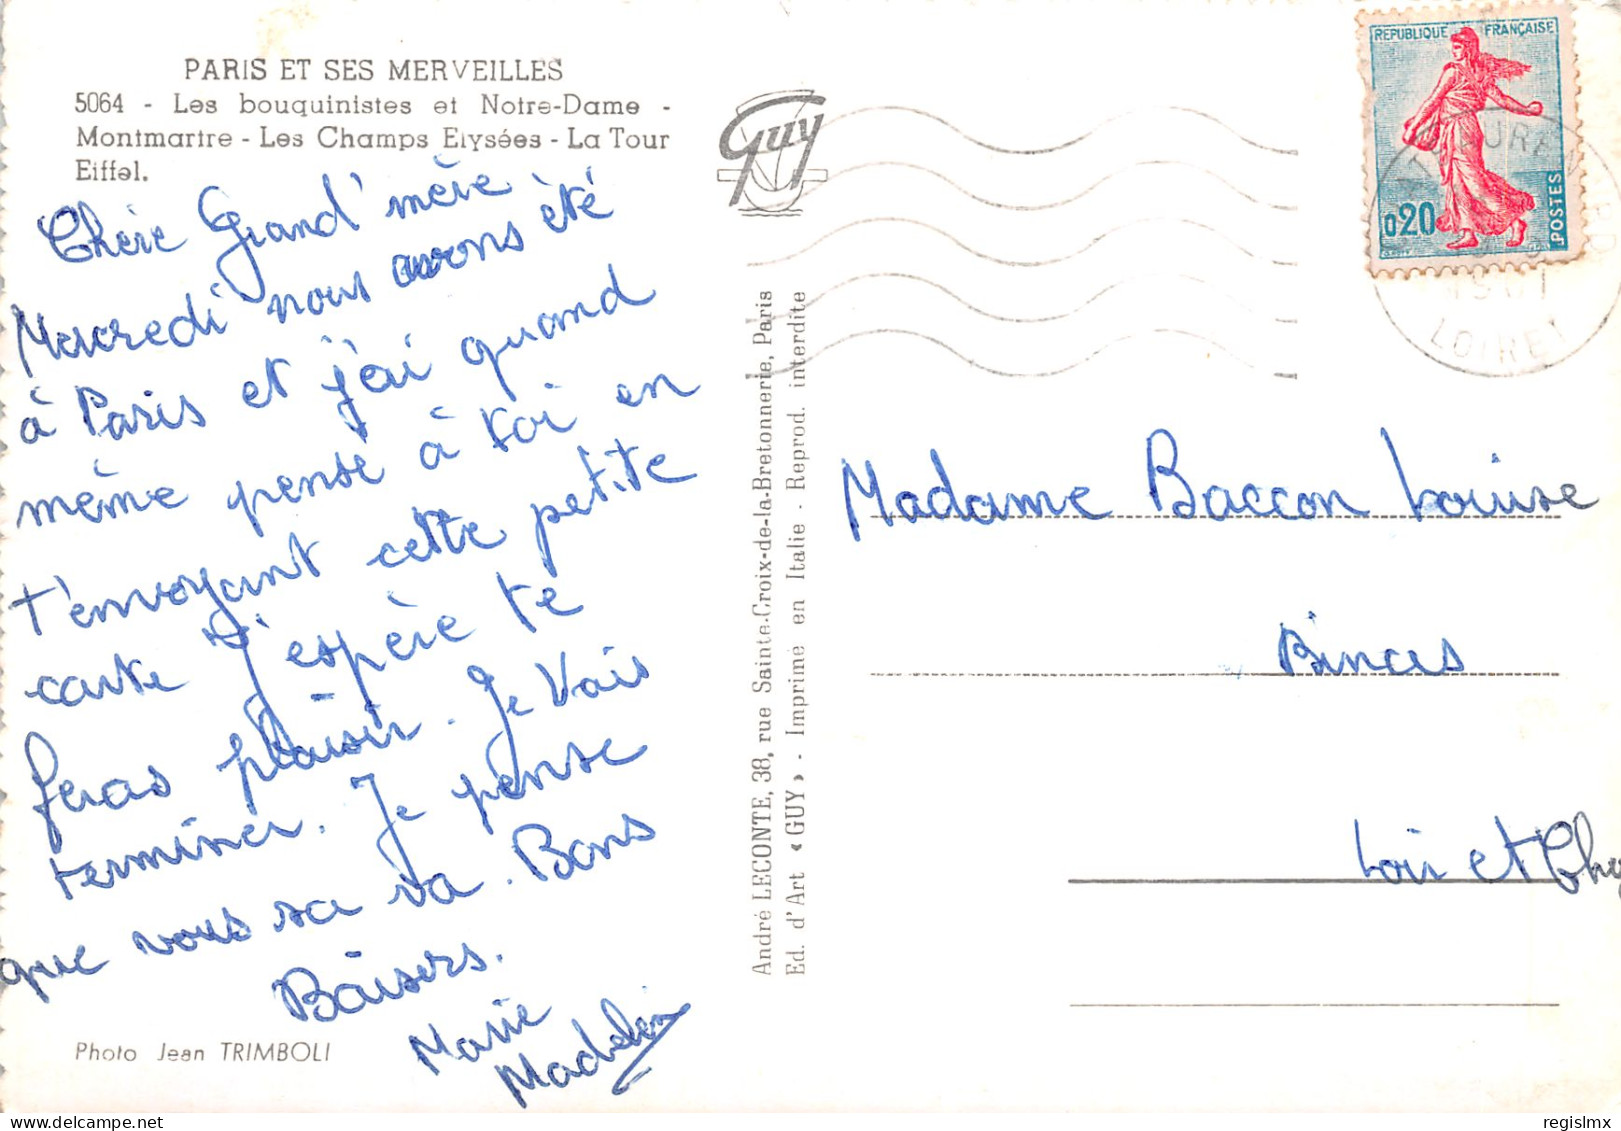 PARIS ET SES MERVEILLES
5064 - Les bouquinistes et Notre-Dame -
Montmartre - Les Champs Elysées - La Tour
Eiffel.
Chère Grand'mère
Mercredi nous avons été
à Paris et j'ai quand
même pensé à toi en
t'envoyant cette petite
carte J'espère te
feras plaisir. Je vais
terminer. Je pense
que vous sa va. Bons
Baisers.
Marie
Madeleine
Photo Jean TRIMBOLI
Guy
André LECONTE, 38, rue Sainte-Croix-de-la-Bretonnerie, Paris
Ed. d'Art « GUY » - Imprimé en Italie - Reprod. interdite
REPUBLIQUE FRANÇAISE
0,20
POSTES
LOIRET
Madame Baccon Louise
Binas
Loir et Cher
regislmx